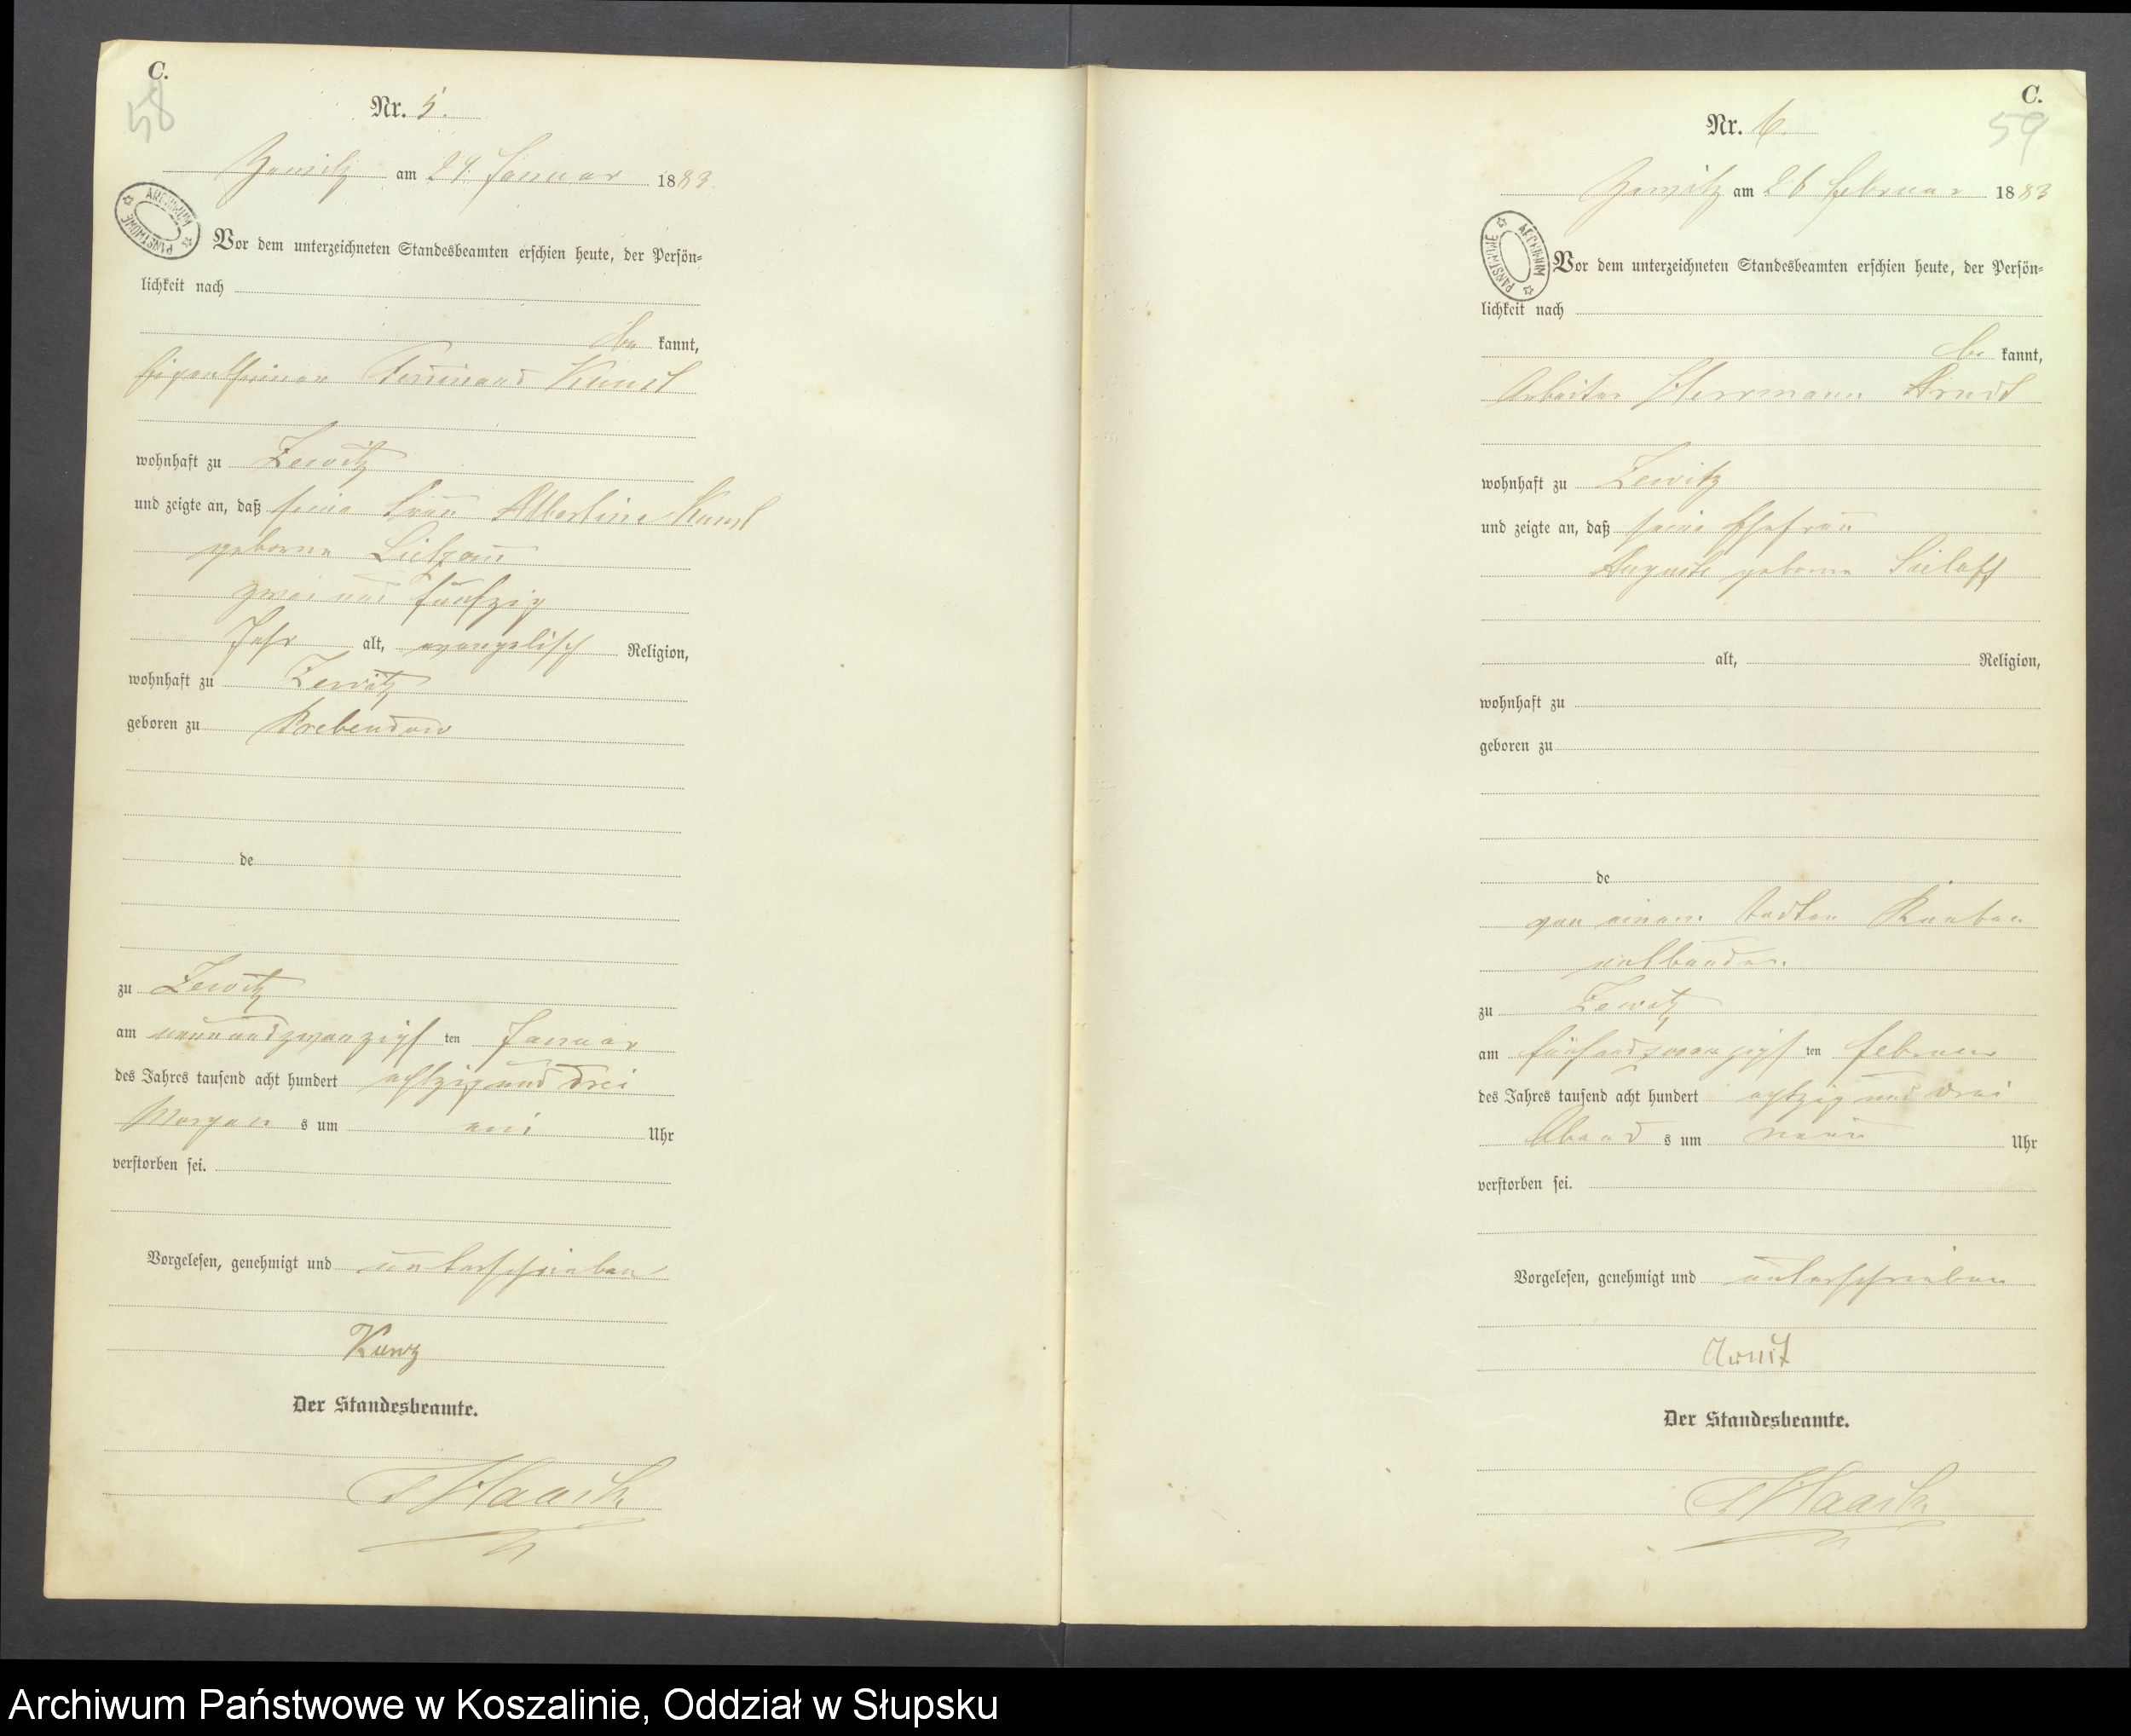 C.
58
Nr. 5.
Zewitz am 29. Januar 1883.
ARCHIWUM PAŃSTWOWE
Vor dem unterzeichneten Standesbeamten erschien heute, der Persön-
lichkeit nach
be kannt,
Eigenthümer Ferdinand
wohnhaft zu Zewitz
und zeigte an, daß seine Frau Albertine
geborne
zwei und fünfzig
Jahr alt, evangelisch Religion,
wohnhaft zu Zewitz
geboren zu Prebendow
de
zu Zewitz
am neunundzwanzigs ten Januar
des Jahres tausend acht hundert achtzig und drei
Morgen s um Uhr
verstorben sei.
Vorgelesen, genehmigt und unterschrieben
Kunz
Der Standesbeamte.
Haack
C.
59
Nr. 6.
Zewitz am 26 Februar 1883
ARCHIWUM PAŃSTWOWE
Vor dem unterzeichneten Standesbeamten erschien heute, der Persön-
lichkeit nach
be kannt,
Arbeiter Herrmann Arndt
wohnhaft zu Zewitz
und zeigte an, daß seine Ehefrau
Auguste geborne Sielaff
alt, Religion,
wohnhaft zu
geboren zu
de
von einem todten Knaben
entbunden.
zu Zewitz
am fünfundzwanzigs ten Februar
des Jahres tausend acht hundert achtzig und drei
Abend s um neun Uhr
verstorben sei.
Vorgelesen, genehmigt und unterschrieben
Arndt
Der Standesbeamte.
Haack
Archiwum Państwowe w Koszalinie, Oddział w Słupsku